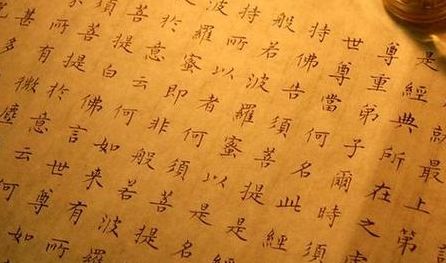 最上第
是經典所在之處
尊重弟子爾時須
世尊當何名此經
持佛告須菩提是
般若波羅蜜以是名
持所以者何須菩提
波羅蜜即非般若波羅
於意云何如來有所
菩提白佛言世尊如
菩提於意云何
有微塵
甚多